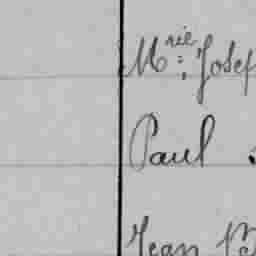 Mrie: Josep
Paul
Jean B